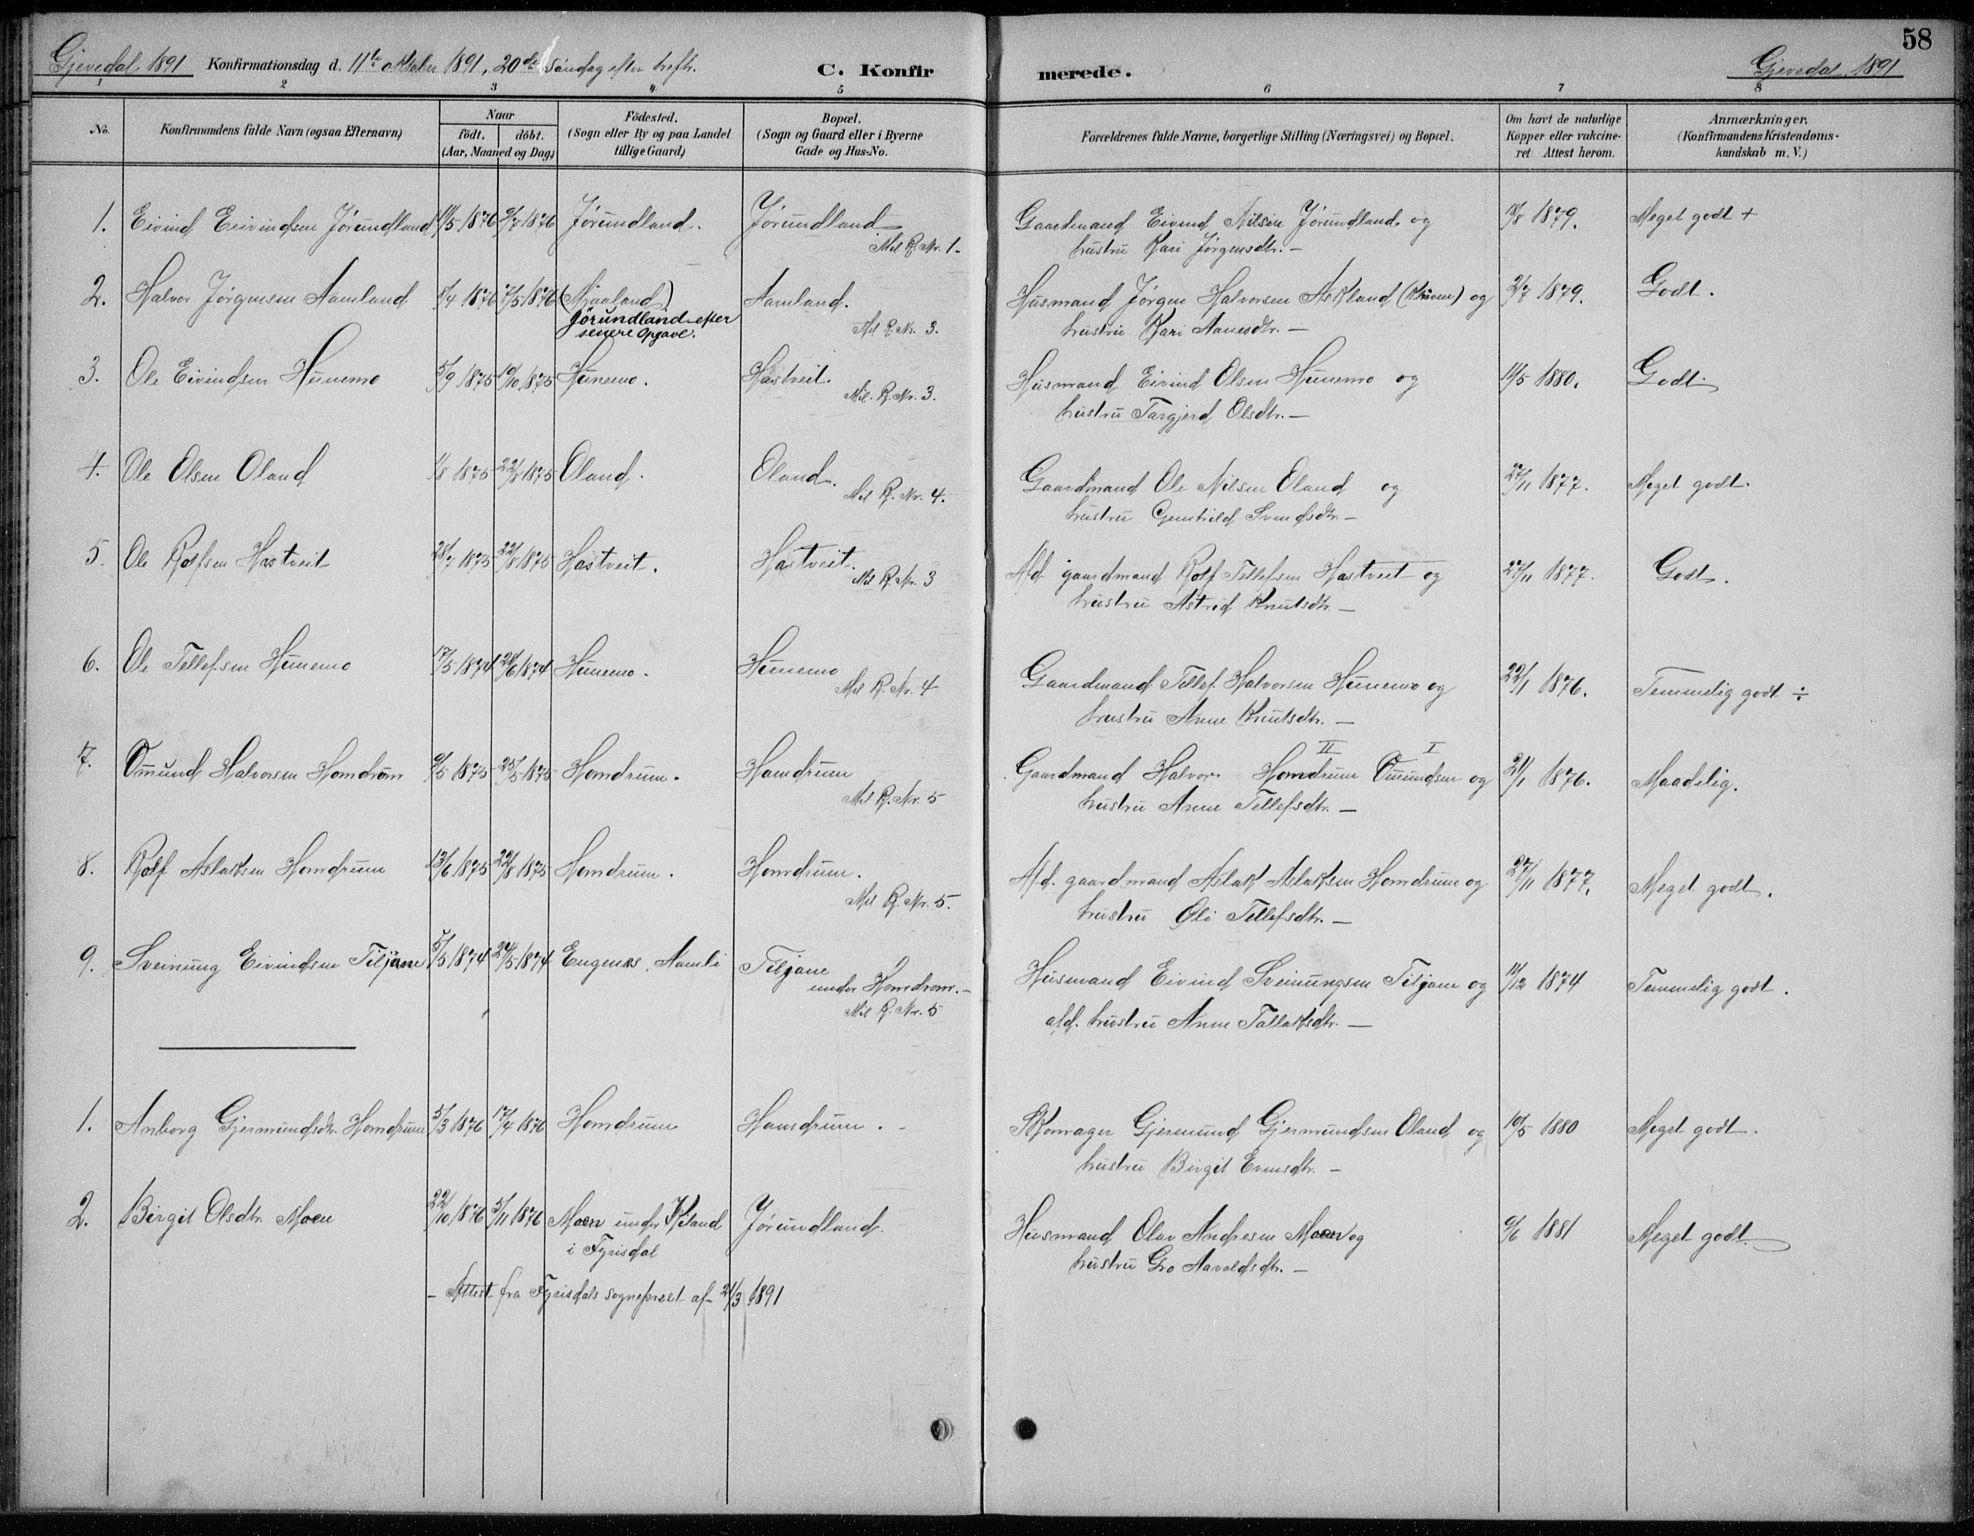 58
Gjevedal 1891 Konfirmationsdag d. 11te oktober 1891, 20de søndag efter trefh. C. Konfirmerede. Gjevedal 1891
1 2 3 4 5 6 7 8
No. Konfirmandens fulde Navn (ogsaa Efternavn) Naar født. døbt. (Aar, Maaned og Dag) Födested. (Sogn eller By og paa Landet tillige Gaard) Bopæl. (Sogn og Gaard eller i Byerne Gade og Hus-No. Forældrenes fulde Navne, borgerlige Stilling (Næringsvei) og Bopæl. Om havt de naturlige Kopper eller vakcineret Attest herom. Anmærkninger. (Konfirmandens Kristendomskundskab m. V.)
1. Eivind Eivindsen Jørundland 11/5 1876 9/7 1876 Jørundland. Jørundland Gaardmand Eivind Nilsen Jørundland og 18/8 1879. Meget godt +
Mil R. Nr. 1- hustru Kari Jørgensdtr. -
2. Halvor Jørgensen Aamland 8/4 1876 7/5 1876 (Mjaaland) Aamland. Husmand Jørgen Halvorsen Askland (Kluven) og 2/7 1879. Godt.
Jørundland efter senere Opgave. Mil R. Nr. 3. hustru Kari Aanesdtr. -
3. Ole Eivindsen Hunemo 5/9 1875 10/10 1875 Hunemo. Hastveit. Husmand Eivind Olsen Hunemo og 11/5 1880. Godt.
Mil. R. Nr. 3. hustru Targjerd Olsdtr. -
4. Ole Olsen Oland 1/8 1875 22/8 1875 Oland. Oland. Gaardmand Ole Nilsen Oland og 27/11 1877. Meget godt.
Mil R. Nr. 4. hustru Gunhild Svendsdtr. -
5. Ole Rolfsen Hastveit 28/7 1875 22/8 1875 Hastveit. Hastveit. Afd. gaardmand Rolf Tellefsen Hastveit og 27/11 1877. Godt.
Mil R. Nr. 3 hustru Astrid Knutsdtr. -
6. Ole Tellefsen Hunemo 17/5 1874 28/6 1874 Hunemo. Hunemo Gaardmand Tellef Halvorsen Hunemo og 22/1 1876. Temmelig godt ÷
Mil R. Nr. 4 hustru Anne Knutsdtr. -
II I
7. Omund Halvorsen Homdrom 9/5 1875 25/5 1875 Homdrum. Homdrum Gaardmand Halvor Homdrum Omundsen og 21/1 1876. Maadelig.
Mil R. Nr. 5 hustru Anne Tellefsdtr. -
8. Rolf Aslaksen Homdrum 13/6 1875 22/8 1875 Homdrum. Homdrum. Afd. gaardmand Aslak Aslaksen Homdrum og 27/11 1877. Meget godt.
Mil R. Nr. 5. hustru Oli Tellefsdtr. -
9. Sveinung Eivindsen Tiljane 5/5 1874 24/5 1874 Engenes, Aamli Tiljane Husmand Eivind Sveinungsen Tiljane og 11/12 1874 Temmelig godt.
under Homdrom. - Mil R. Nr. 5 afd. hustru Anne Tallaksdtr. -
1. Anborg Gjermundsdtr. Homdrum 5/3 1876 17/4 1876 Homdrum Homdrum. - Skomager Gjermund Gjermundsen Oland og 10/5 1880 Meget godt.
hustru Birgit Evensdtr. -
2. Birgit Olsdtr. Moen 22/10 1876 5/11 1876 Moen under Kiland Jørundland. Husmand Olav Andresen Moen og 9/6 1881 Meget godt.
i Fyrisdal hustru Gro Aavoldsdtr. -
- Attest fra Fyrisdals sogneprest af 21/3 1891